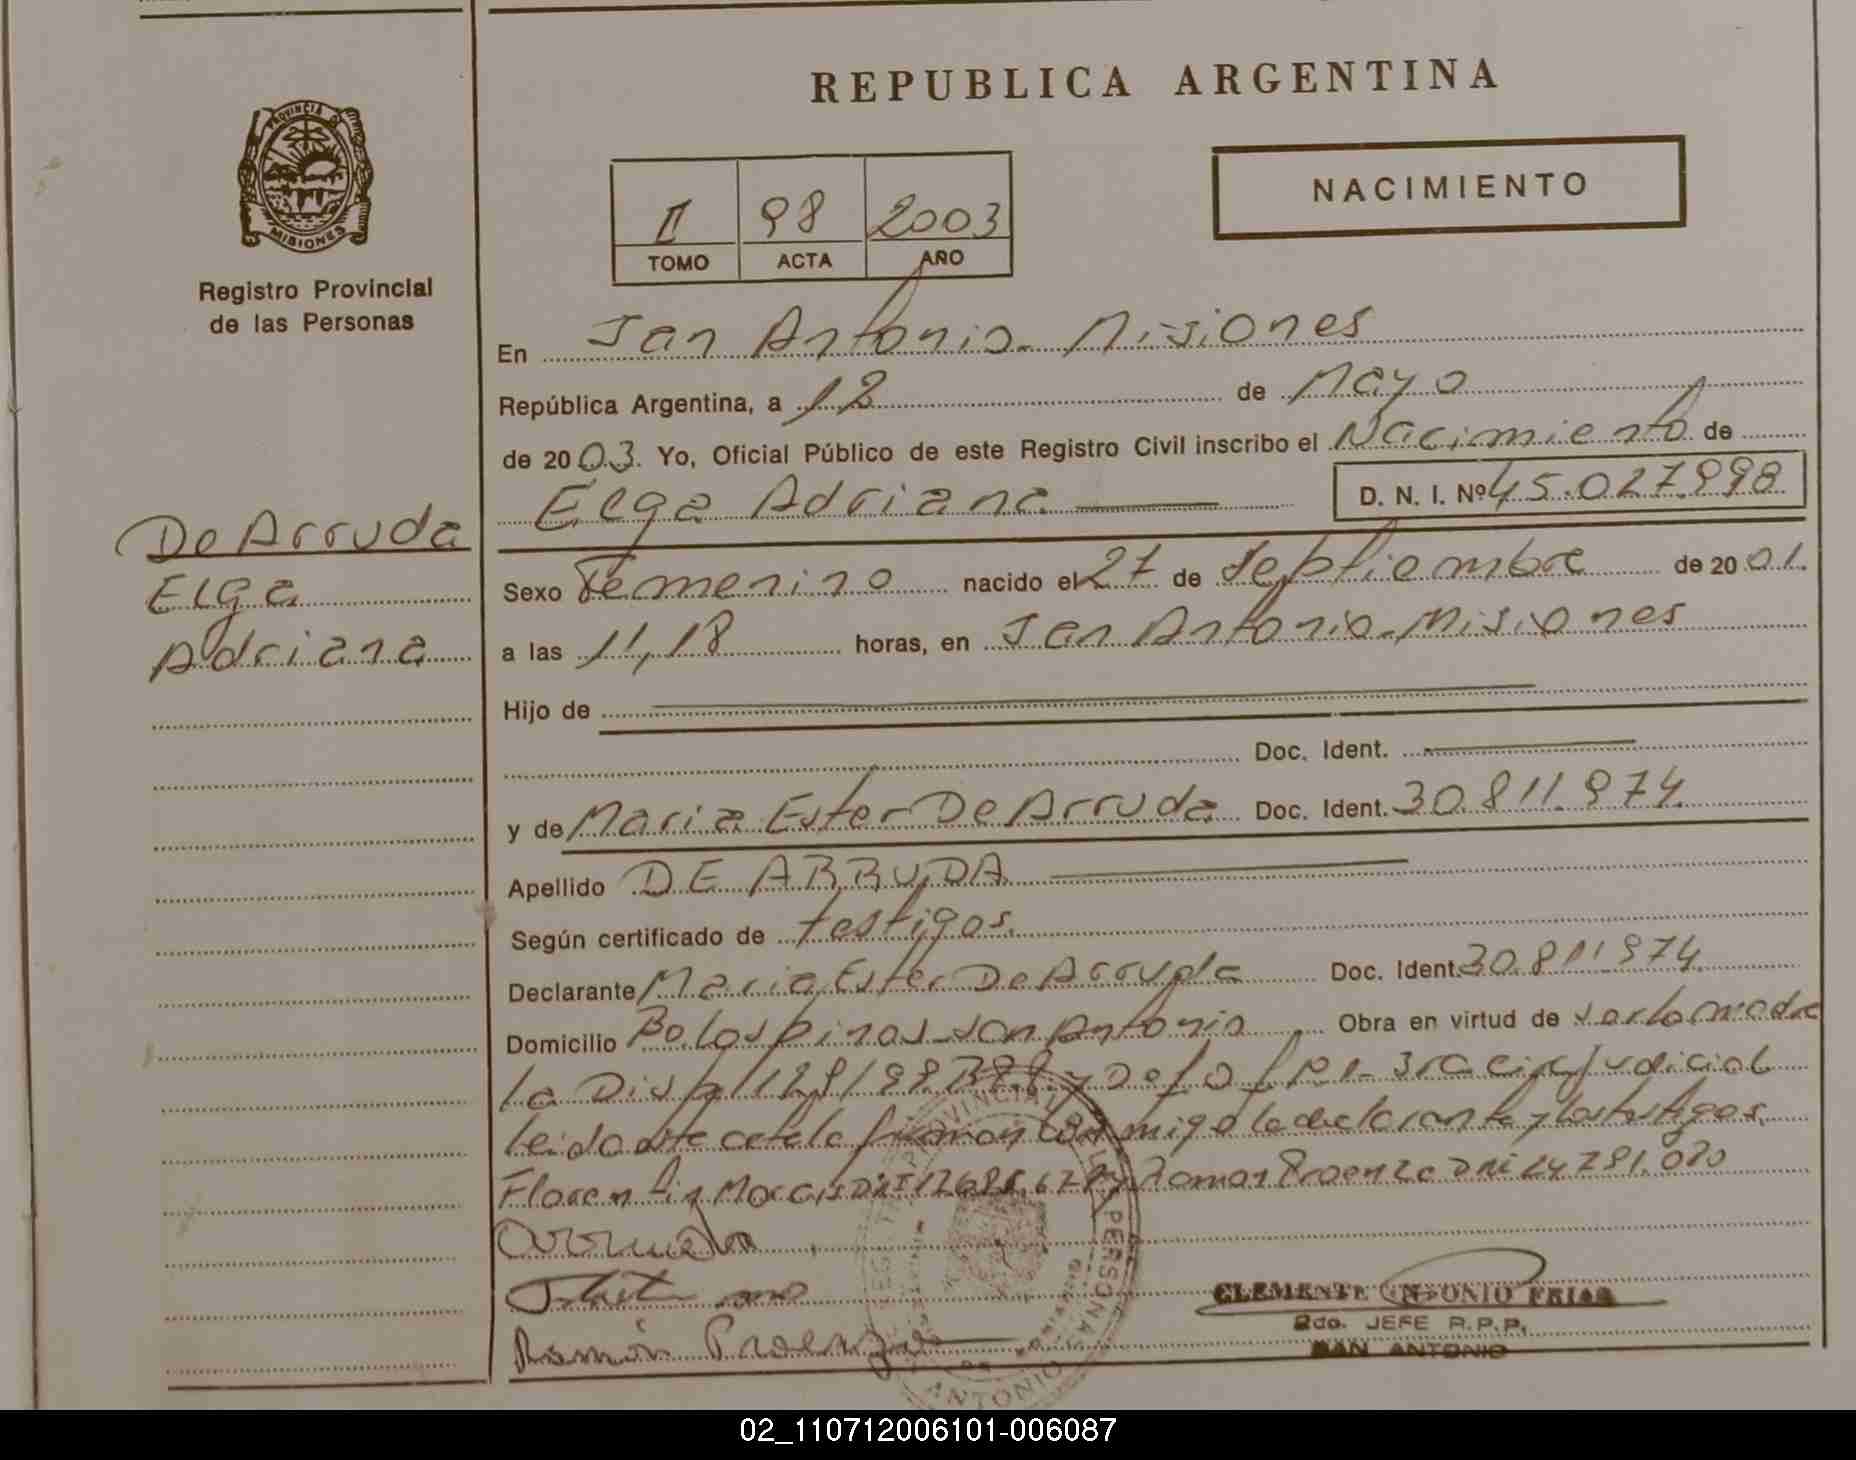 REPUBLICA ARGENTINA
PROVINCIA D
MISIONES
Registro Provincial
de las Personas
NACIMIENTO
II 98 2003
TOMO ACTA AÑO
En San Antonio - Misiones
República Argentina, a 12 de Mayo
de 2003. Yo, Oficial Público de este Registro Civil inscribo el Nacimiento de
Elga Adriana
D. N. I. Nº 45.027.998
De Arruda
Elga
Adriana
Sexo Femenino nacido el 27 de Septiembre de 2001.
a las 11,18 horas, en San Antonio - Misiones
Hijo de
Doc. Ident.
y de Maria Ester De Arruda Doc. Ident. 30.811.974.
Apellido DE ARRUDA
Según certificado de testigos.
Declarante Maria Ester De Arruda Doc. Ident. 30.811.974.
Domicilio San Antonio Obra en virtud de ser la madre
la Disp judicial
leido firman conmigo la declarante y los testigos
Florentin DNI y Roman Proenza DNI 24.791.080
Ramón Proenza
CLEMENTE ANTONIO FRIAS
2do. JEFE R.P.P.
SAN ANTONIO
02_110712006101-006087